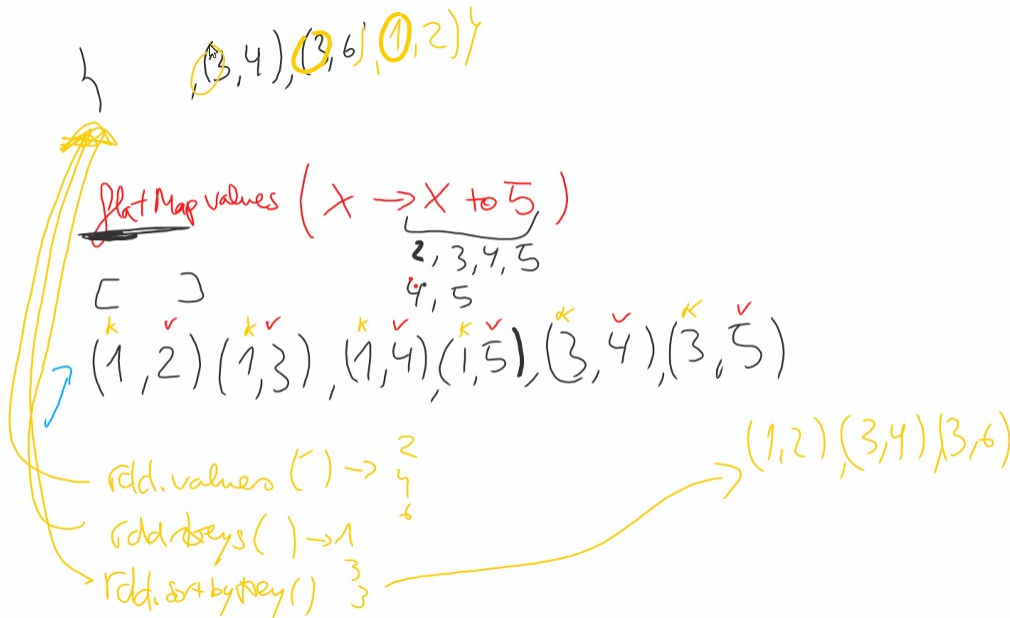 { ,(3,4),(3,6),(1,2)}
flatMap values (x → x to 5)
2, 3, 4, 5
4, 5
[ ]
k v k v k v k v k v k v
(1,2)(1,3),(1,4),(1,5),(3,4),(3,5)
(1,2),(3,4),(3,6)
rdd.values() → 2
4
6
rdd.keys() → 1
3
rdd.sortbykey() 3